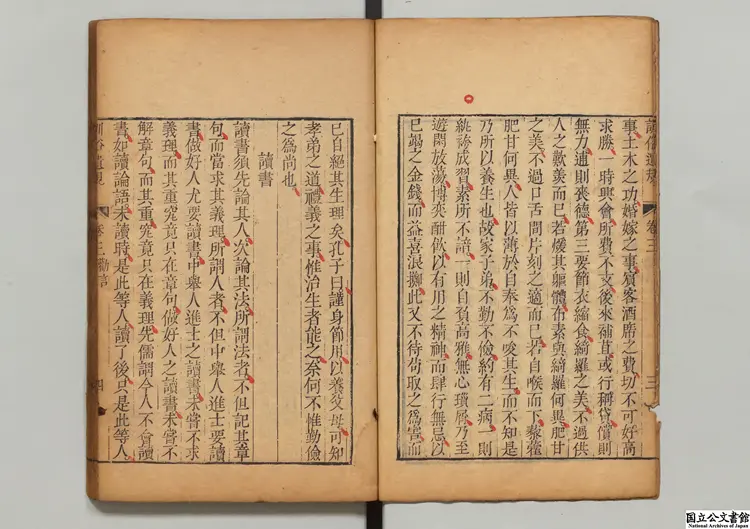 訓俗遺規 卷三 三
事土木之功婚嫁之事賓客酒席之費切不可好高
求勝一時興會所費不支後來補苴或行稱貸償則
無力逋則喪德第三要節衣縮食綺羅之美不過供
人之歎羨而已若煖其軀體布素與綺羅何異肥甘
之美不過口舌間片刻之適而已若自喉而下藜藿
肥甘何異人皆以薄於自奉為不唆其生而不知是
乃所以養生也故家子弟不勤不儉約有二病一則
紈袴成習素所不諳一則自負高雅無心瑣屑乃至
遊閒放蕩博奕酣飲以有用之精神而肆行無忌以
已竭之金錢而益喜浪擲此又不待苟取之為害而
已自絕其生理矣孔子曰謹身節用以養父母可知
孝弟之道禮義之事惟治生者能之奈何不惟勤儉
之為尚也
讀書
讀書須先論其人次論其法所謂法者不但記其章
句而當求其義理所謂人者不但中舉人進士要讀
書做好人尤要讀書中舉人進士之讀書未嘗不求
義理而其重究竟只在章句做好人之讀書未嘗不
解章句而其重究竟只在義理先儒謂今人不會讀
書如讀論語未讀時是此等人讀了後只是此等人
訓俗遺規 卷三 勸言 四
国立公文書館
National Archives of Japan